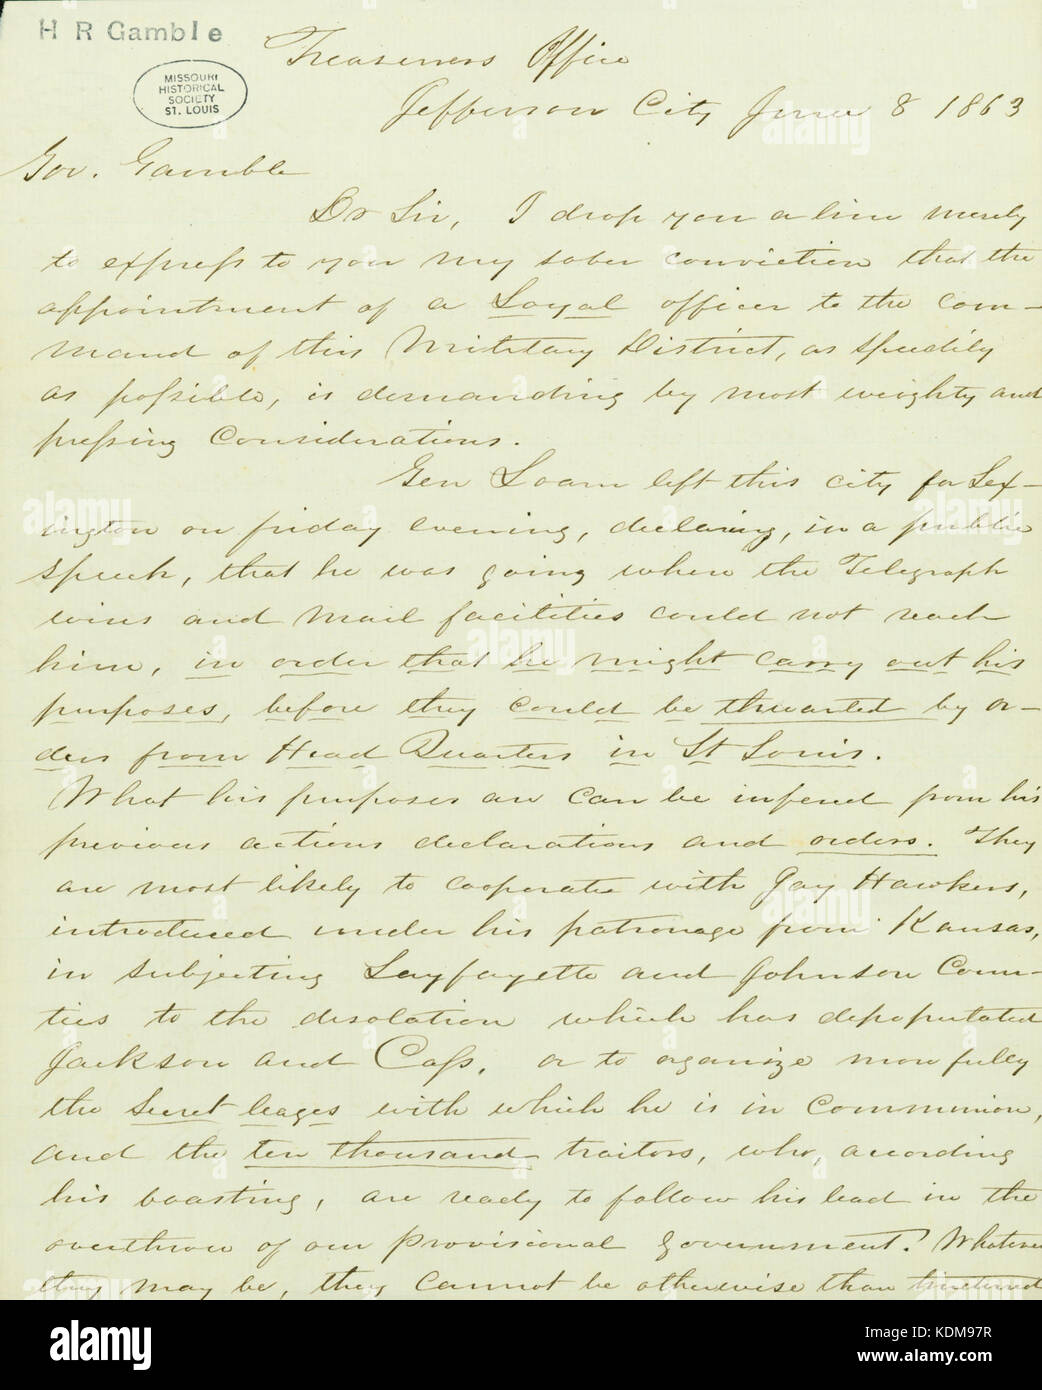 H R Gamble
MISSOURI
HISTORICAL
SOCIETY
ST. LOUIS
Treasurers Office
Jefferson City June 8 1863
Gov. Gamble
Dr Sir, I drop you a line merely
to express to you my sober conviction that the
appointment of a Loyal officer to the com-
mand of this Military District, as speedily
as possible, is demanding by most weighty and
pressing considerations.
Gen Loam left this city for Lex-
ington on friday evening, declaring, in a public
speech, that he was going where the Telegraph
wires and Mail facilities could not reach
him, in order that he might carry out his
purposes, before they could be thwarted by or-
ders from Head Quarters in St Louis.
What his purposes are can be infered from his
previous actions declarations and orders. They
are most likely to cooperate with Jay Hawkers,
introduced under his patronage from Kansas,
in subjecting Layfayette and Johnson Coun-
ties to the desolation which has depopulated
Jackson and Cass, or to organize more fully
the Secret leages with which he is in communion,
and the ten thousand traitors, who, according
his boasting, are ready to follow his lead in the
overthrow of our provisional government? Whatever
they may be, they cannot be otherwise than
alamy
alamy
Image ID: KDM97R
www.alamy.com